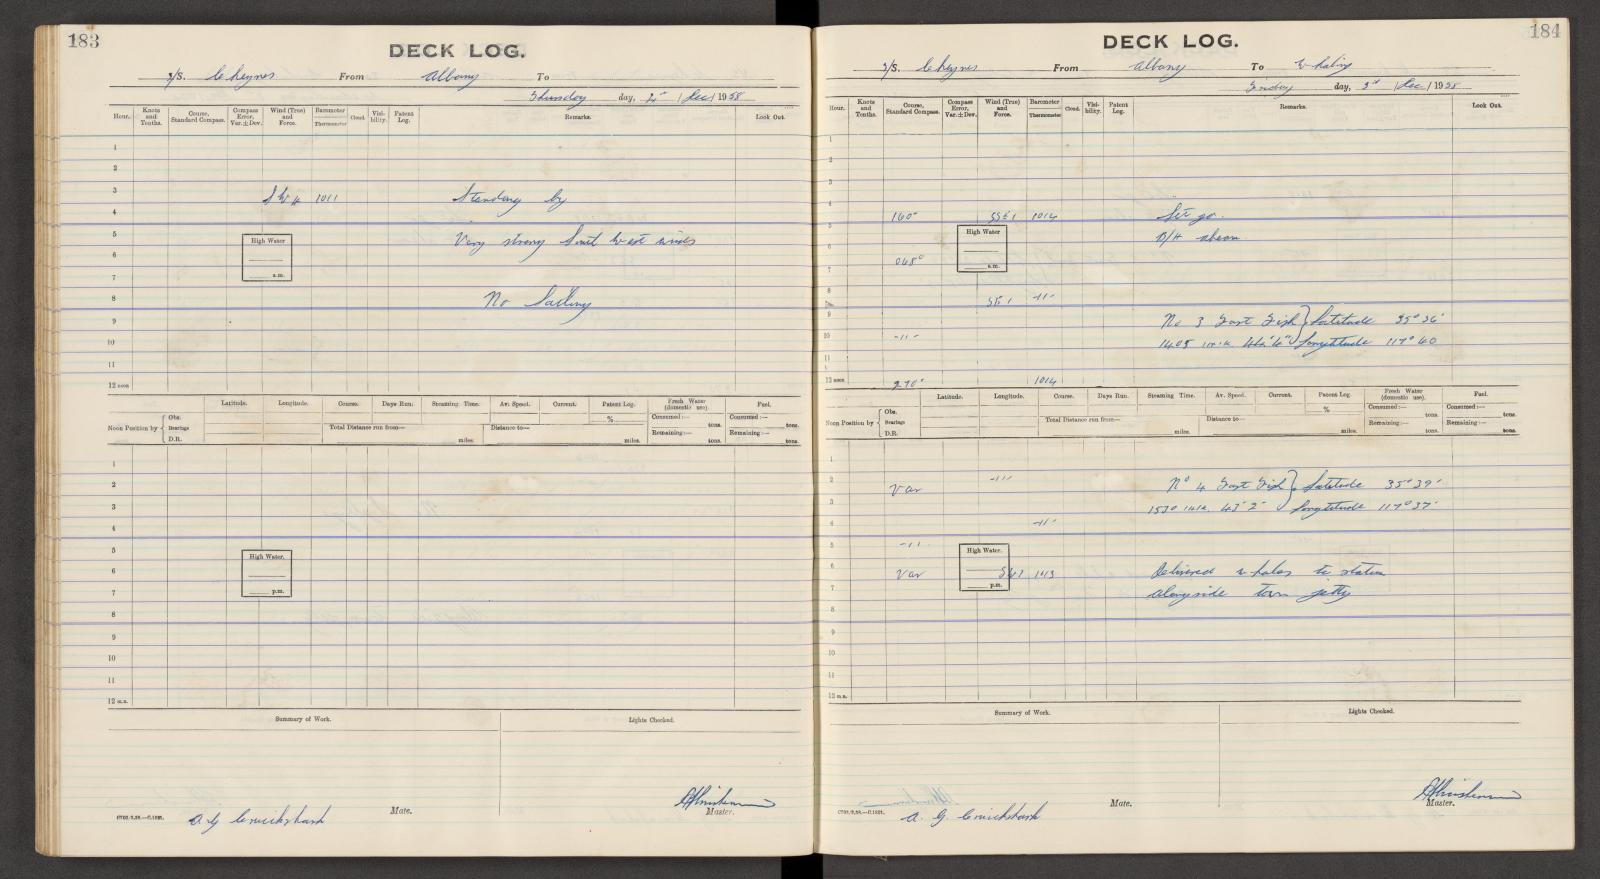 183
DECK LOG.
S/S. Cheynes From Albany To
Thursday day, 2nd /Dec/ 1958
Hour. Knots and Tenths. Course, Standard Compass. Compass Error, Var. ± Dev. Wind (True) and Force. Barometer Thermometer Cloud. Visibility. Patent Log. Remarks. Look Out.
1
2
3 SW 4 1011 Standing by
4
5 Very strong Sout West winds
High Water
6
7 a.m.
8 No Sailing
9
10
11
12 noon
Latitude. Longitude. Course. Days Run. Steaming Time. Av. Speed. Current. Patent Log. Fresh Water (domestic use). Fuel.
Noon Position by { Obs. Bearings D.R.
% Consumed:— tons. Consumed:— tons.
Total Distance run from— miles. Distance to— miles. Remaining:— tons. Remaining:— tons.
1
2
3
4
5
High Water.
6
7 p.m.
8
9
10
11
12 m.n.
Summary of Work. Lights Checked.
Mate. Master.
A. G Cruickshank
184
DECK LOG.
S/S. Cheynes From Albany To Whaling
day, 3rd /Dec/ 1958
Hour. Knots and Tenths. Course, Standard Compass. Compass Error, Var. ± Dev. Wind (True) and Force. Barometer Thermometer Cloud. Visibility. Patent Log. Remarks. Look Out.
1
2
3
4
160° SSE 1 1014 Let go.
5
High Water
B/H abeam
6
048°
7 a.m.
8
SE 1 -11-
9
No 3 Fast Fish } Latitude 35° 36'
10 -11-
1405 Longtitude 117° 40
11
12 noon 270° 1014
Latitude. Longitude. Course. Days Run. Steaming Time. Av. Speed. Current. Patent Log. Fresh Water (domestic use). Fuel.
Noon Position by { Obs. Bearings D.R.
% Consumed:— tons. Consumed:— tons.
Total Distance run from— miles. Distance to— miles. Remaining:— tons. Remaining:— tons.
1
2 Var -11- No 4 Fast Fish } Latitude 35° 39'
3 1530 43' 2" Longtitude 117° 37'
4 -11-
5 -11-
High Water.
6 Var 1013 Delivered whales to station
7 p.m. alongside town jetty
8
9
10
11
12 m.n.
Summary of Work. Lights Checked.
Mate. Master.
A. G. Cruickshank